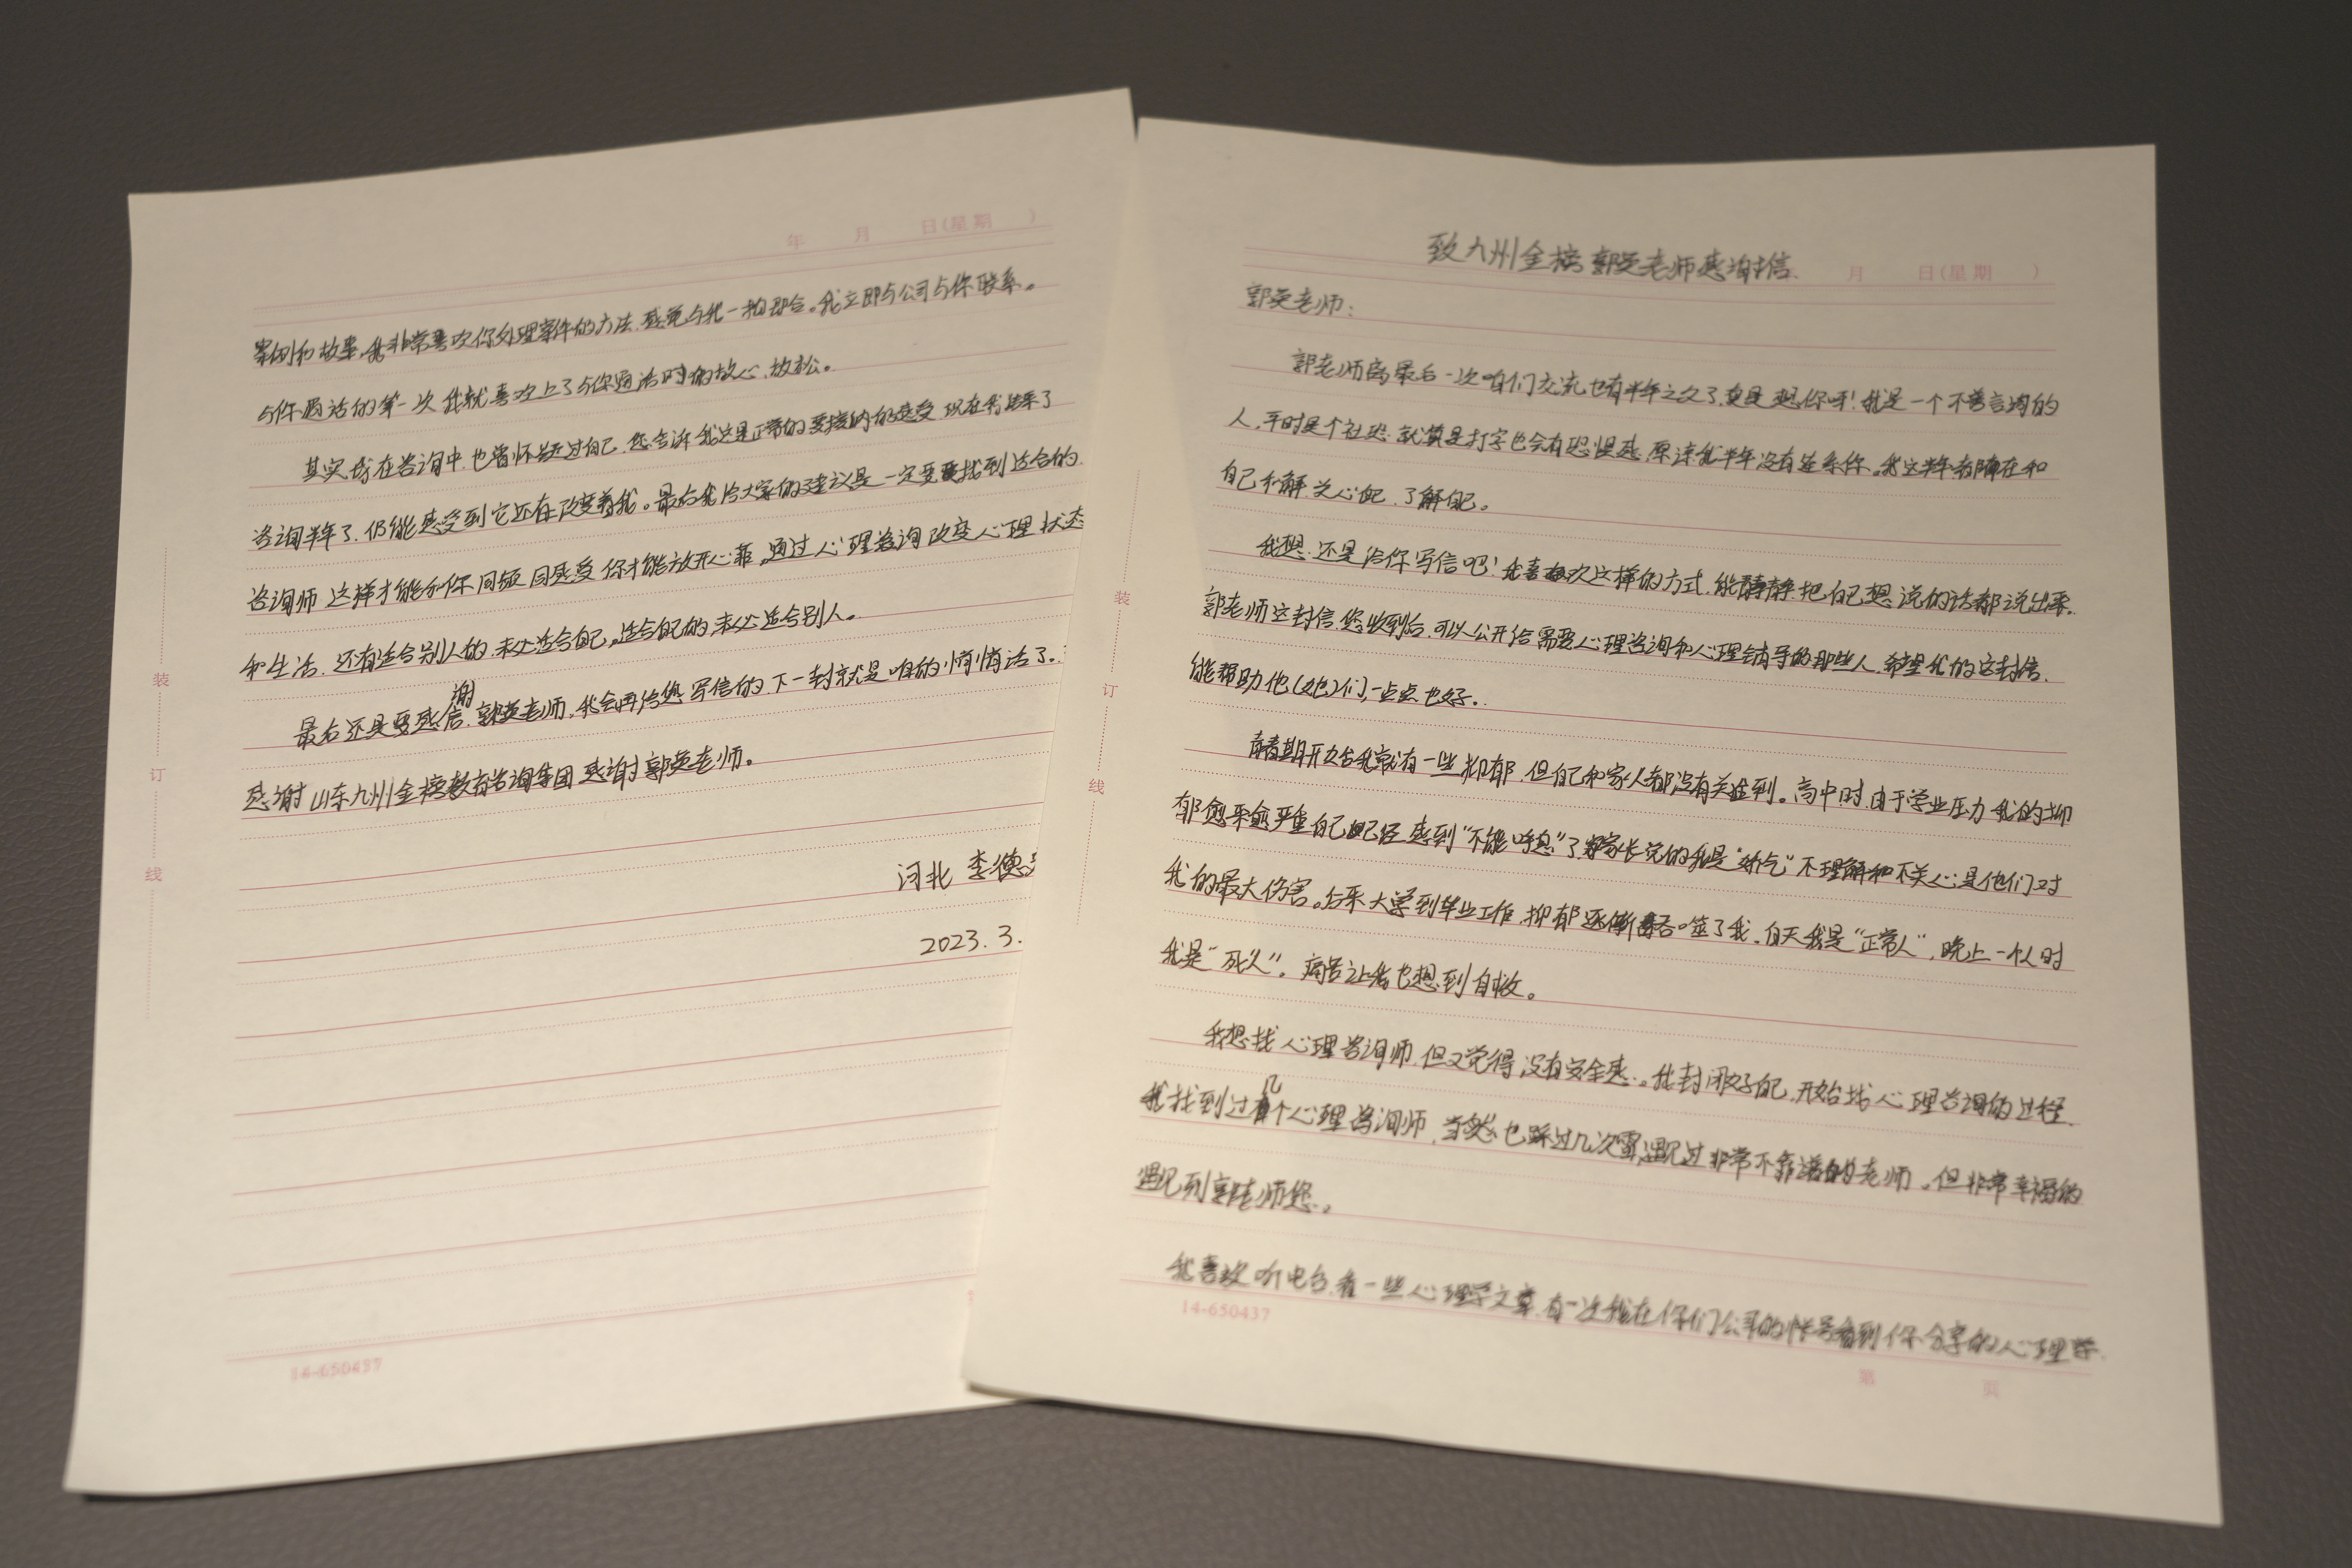 致九州金榜郭英老师感谢信
月 日(星期 )
郭英老师:
郭老师离最后一次咱们交流也有半年之久了,真是想你呀!我是一个不善言谈的
人,平时是个社恐.就算是打字也会有恐惧感,原谅我半年没有连系你。我这半年都在和
自己和解.关心自己.了解自己。
我想.还是给你写信吧!我喜欢这样的方式.能静静把自己想说的话都说出来.
郭老师这封信.您收到后.可以公开给需要心理咨询和心理辅导的那些人.希望我的这封信.
能帮助他(她)们,一点点也好。
青春期开始我常有一些抑郁.但自己和家人都没有关注到。高中时.由于学业压力我的抑
郁愈来愈严重自己已经感到“不能呼息”了.家长说的我是“娇气”不理解和不关心是他们对
我的最大伤害。后来大学到毕业工作.抑郁逐渐吞噬了我.白天我是“正常人”.晚上一个人时
我是“死人”。痛苦让我也想到自杀。
我想找心理咨询师.但又觉得没有安全感。我封闭好自己.开始找心理咨询的过程.
我找到过几个心理咨询师.当然也踩过几次雷,遇见过非常不靠谱的老师。但非常幸福的
遇见到郭老师您。
我喜欢听电台.看一些心理学文章.有一次我在你们公司的帐号看到你分享的心理学
14-650437
第 页
装
订
线
年 月 日(星期 )
案例和故事.我非常喜欢你处理案件的方法.感觉与我一拍即合。我立即与公司与你联系。
与你通话的第一次我就喜欢上了与你通话时的放心.放松。
其实我在咨询中.也曾怀疑过自己.您告诉我这是正常的要接纳的感受.现在我结束了
咨询半年了.仍能感受到它还在改变着我。最后我给大家的建议是一定要找到适合的
咨询师 这样才能和你同频 同感受 你才能放开心菲。通过心理咨询改变心理状态
和生活.还有适合别人的.未必适合自己。适合自己的,未必适合别人。
最后还是要感谢信.郭英老师.我会再给您写信的下一封就是咱的悄悄话了.
感谢山东九州金榜教育咨询集团 感谢郭英老师。
河北 李德
2023.3.
14-650437
装
订
线